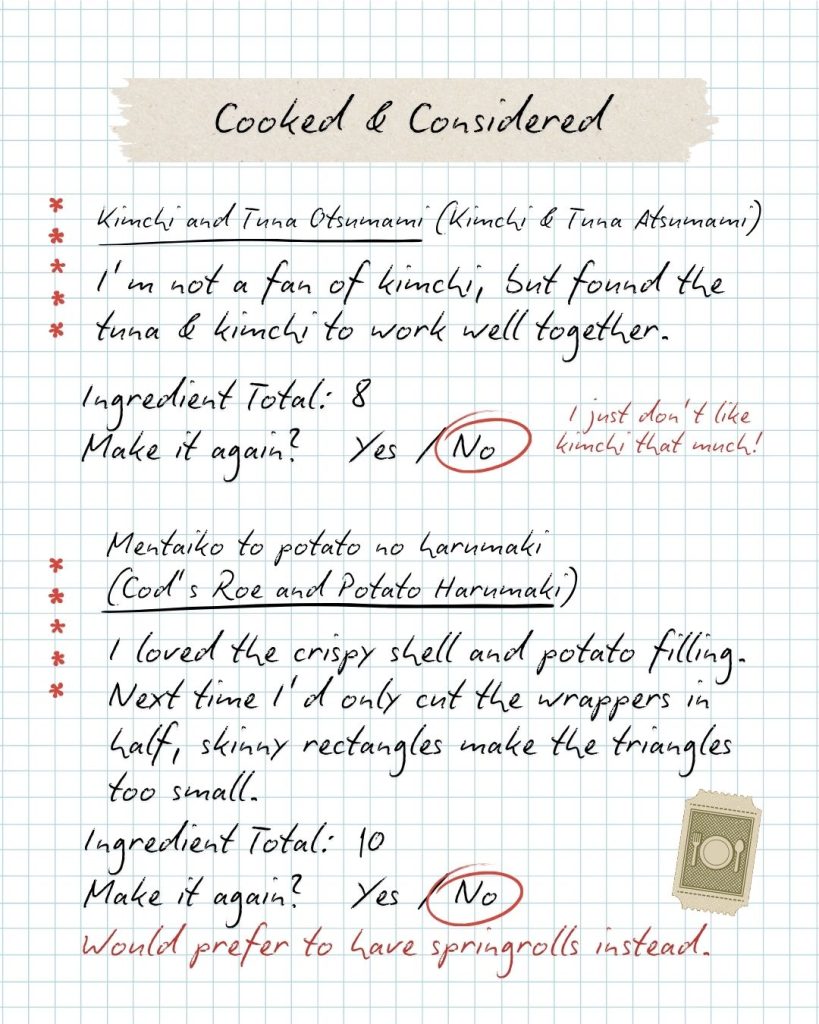 Cooked & Considered
Kimchi and Tuna Otsumami (Kimchi & Tuna Atsumami)
I'm not a fan of kimchi, but found the
tuna & kimchi to work well together.
Ingredient Total: 8
Make it again? Yes / No
I just don't like
kimchi that much!
Mentaiko to potato no harumaki
(Cod's Roe and Potato Harumaki)
I loved the crispy shell and potato filling.
Next time I'd only cut the wrappers in
half, skinny rectangles make the triangles
too small.
Ingredient Total: 10
Make it again? Yes / No
Would prefer to have springrolls instead.